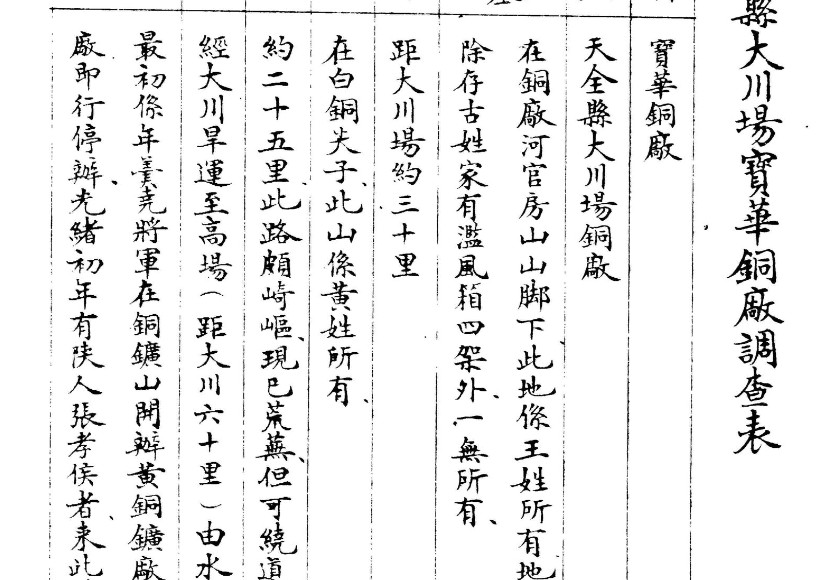 縣大川場寶華銅廠調查表
寶華銅廠
天全縣大川場銅廠
在銅廠河官房山山脚下此地係王姓所有地
除存古姓家有濫風箱四架外、一無所有、
距大川場約三十里
在白銅尖子、此山係黃姓所有、
約二十五里此路頗崎嶇、現已荒蕪、但可繞道
經大川旱運至高場（距大川六十里）由水
最初係年羹堯將軍在銅鑛山開辦黃銅鑛廠
廠即行停辦、光緒初年有陝人張孝侯者、来此